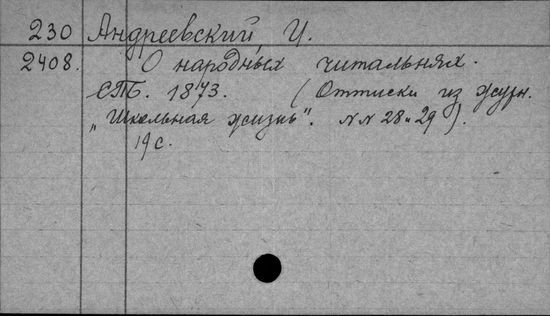 230 Андреевский, И.
2408. О народных читальнях.
СПБ. 1873. (Оттиски из журн.
„Школьная жизнь". NN 28 и 29).
19 с.